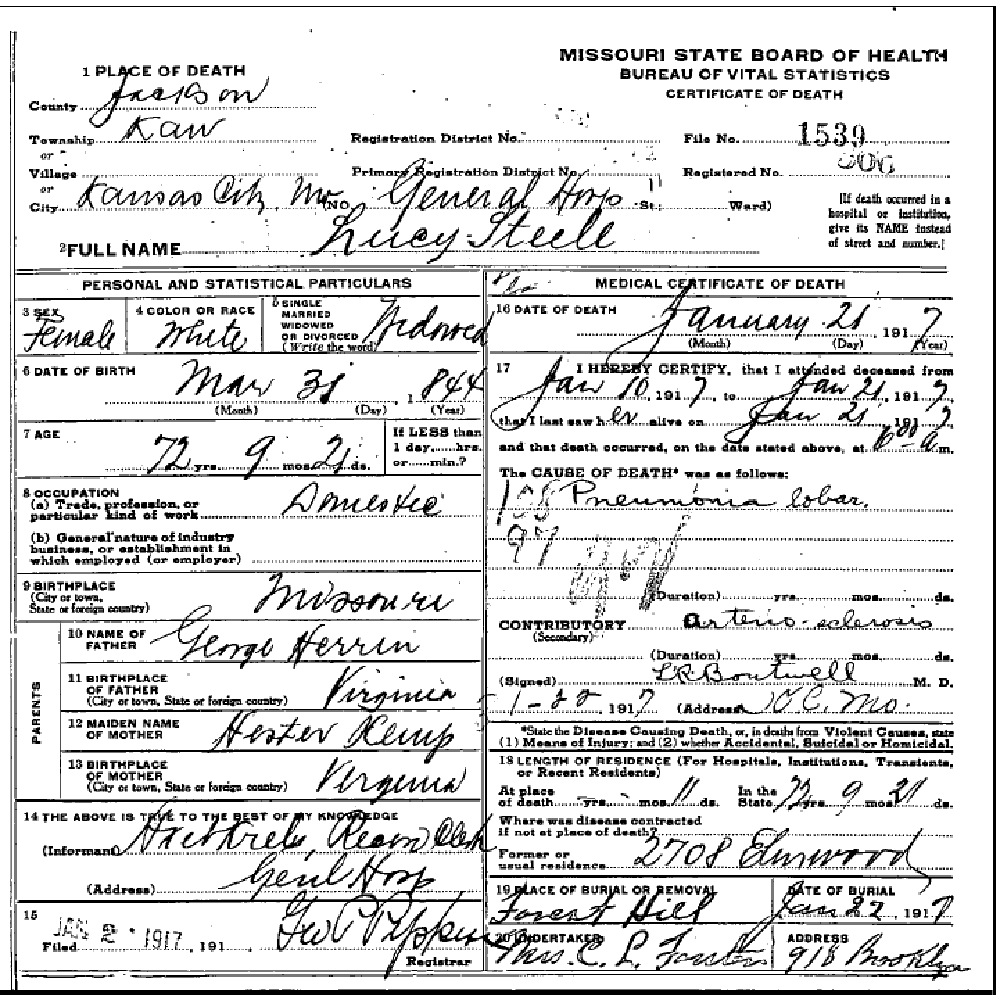 MISSOURI STATE BOARD OF HEALTH
BUREAU OF VITAL STATISTICS
CERTIFICATE OF DEATH
1 PLACE OF DEATH
County Jackson
Township Kaw
or
Village
or
City Kansas City, Mo. (NO. General Hosp St; Ward)
Registration District No.
Primary Registration District No.
File No. 1539
Registered No.
[If death occurred in a
hospital or institution,
give its NAME instead
of street and number.]
2 FULL NAME Lucy Steell
PERSONAL AND STATISTICAL PARTICULARS
3 SEX Female
4 COLOR OR RACE White
5 SINGLE
MARRIED
WIDOWED
OR DIVORCED
(Write the word) Widowed
6 DATE OF BIRTH Mar 31, 1844
(Month) (Day) (Year)
7 AGE 72 yrs. 9 mos. 21 ds.
If LESS than
1 day,......hrs.
or......min.?
8 OCCUPATION
(a) Trade, profession, or
particular kind of work Domestic
(b) General nature of industry
business, or establishment in
which employed (or employer)
9 BIRTHPLACE
(City or town,
State or foreign country) Missouri
PARENTS
10 NAME OF
FATHER George Herrin
11 BIRTHPLACE
OF FATHER
(City or town, State or foreign country) Virginia
12 MAIDEN NAME
OF MOTHER Hester Kemp
13 BIRTHPLACE
OF MOTHER
(City or town, State or foreign country) Virginia
14 THE ABOVE IS TRUE TO THE BEST OF MY KNOWLEDGE
(Informant) Clerk
(Address) Genl Hosp
15
Filed JAN 2 1917, 191
Registrar
MEDICAL CERTIFICATE OF DEATH
16 DATE OF DEATH January 21 1917
(Month) (Day) (Year)
17 I HEREBY CERTIFY, that I attended deceased from
Jan 10, 1917, to Jan 21, 1917,
that I last saw her alive on Jan 21, 1917,
and that death occurred, on the date stated above, at m.
The CAUSE OF DEATH* was as follows:
108 Pneumonia lobar.
97
(Duration) yrs. mos. ds.
CONTRIBUTORY Arterio-sclerosis
(Secondary)
(Duration) yrs. mos. ds.
(Signed) L.R. Boutwell M. D.
1-22, 1917 (Address K C. Mo.
*State the Disease Causing Death, or, in deaths from Violent Causes, state
(1) Means of Injury; and (2) whether Accidental, Suicidal or Homicidal.
18 LENGTH OF RESIDENCE (For Hospitals, Institutions, Transients,
or Recent Residents)
At place
of death yrs. mos. 11 ds.
In the
State 72 yrs. 9 mos. 21 ds.
Where was disease contracted
if not at place of death?
Former or
usual residence 2708 Elmwood
19 PLACE OF BURIAL OR REMOVAL
Forest Hill
DATE OF BURIAL
Jan 22, 1917
20 UNDERTAKER
Mrs. C. L. Forster
ADDRESS
918 Brooklyn